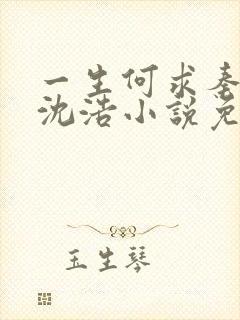 一生何求秦
沈浩小說免
玉生琴